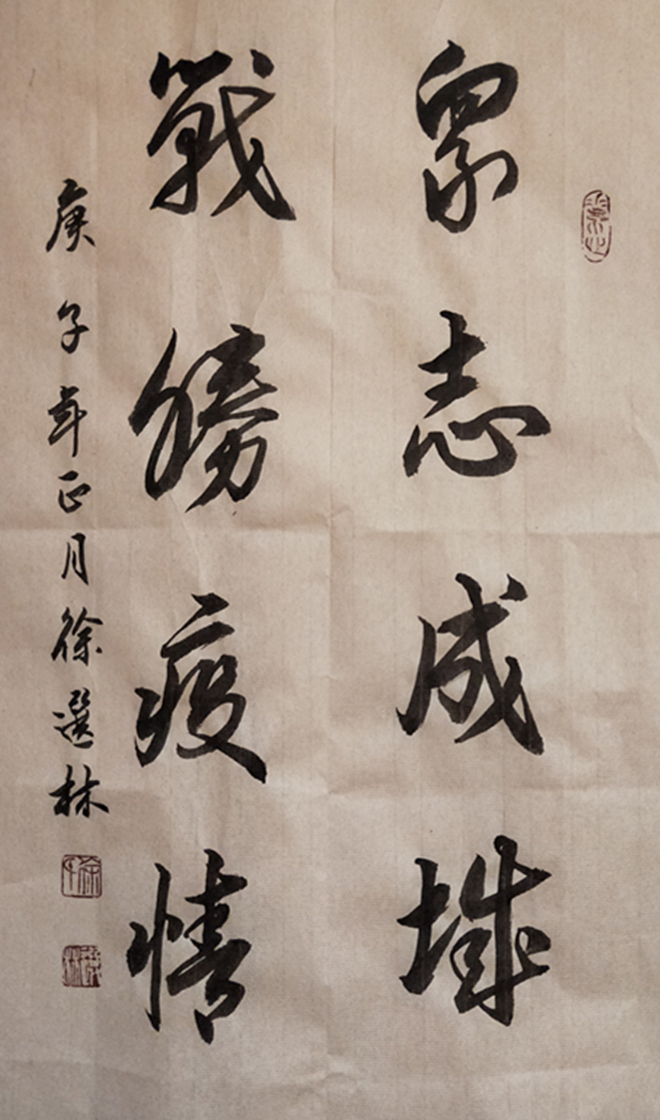 眾志成城
戰勝疫情
庚子年正月徐選林